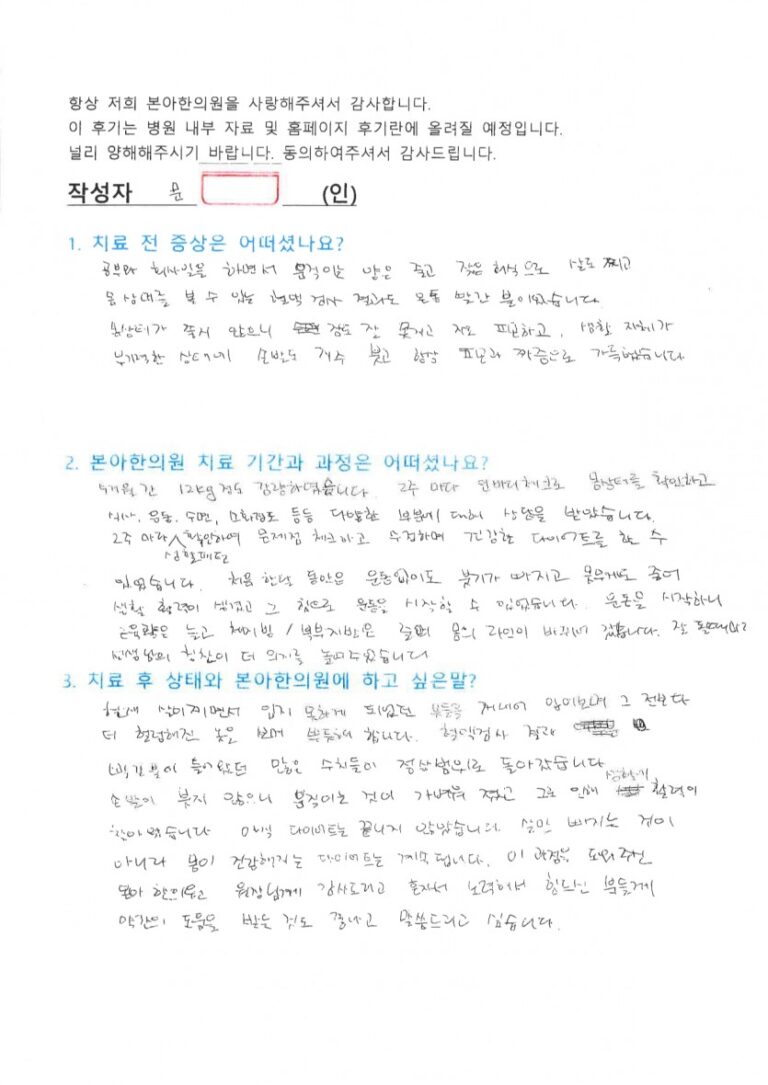 항상 저희 본아한의원을 사랑해주셔서 감사합니다.
이 후기는 병원 내부 자료 및 홈페이지 후기란에 올려질 예정입니다.
널리 양해해주시기 바랍니다. 동의하여주셔서 감사드립니다.
작성자 문 (인)
1. 치료 전 증상은 어떠셨나요?
공부와 회사일을 하면서 움직이는 양은 줄고 잦은 회식으로 살도 찌고
몸 상태를 볼 수 있는 혈액 검사 결과도 온통 빨간 불이었습니다.
몸상태가 좋지 않으니 잠도 잘 못자고 자도 피곤하고, 생활 자체가
무기력한 상태에 손발도 자주 붓고 항상 피곤과 짜증으로 가득했습니다.
2. 본아한의원 치료 기간과 과정은 어떠셨나요?
5개월간 12kg정도 감량하였습니다. 2주 마다 인바디체크로 몸상태를 확인하고
식사, 운동, 수면, 소화정도 등등 다양한 부분에 대해 상담을 받았습니다.
2주 마다 생활패턴 확인하여 문제점 체크하고 수정하며 건강한 다이어트를 할 수
있었습니다. 처음 한달 동안은 운동없이도 붓기가 빠지고 몸무게도 줄어
생활 활력이 생겼고 그 힘으로 운동을 시작할 수 있었습니다. 운동을 시작하니
근육량은 늘고 체지방 / 복부지방은 줄며 몸의 라인이 바뀌어 갔습니다. 잘 될때마다
선생님의 칭찬이 더 의지를 높여주었습니다
3. 치료 후 상태와 본아한의원에 하고 싶은말?
현재 살이찌면서 입지 못하게 되었던 옷들을 꺼내어 입어보며 그 전보다
더 헐렁해진 옷을 보며 뿌듯해 합니다. 혈액검사 결과
빨간 불이 들어왔던 많은 수치들이 정상범위로 돌아갔습니다.
손발이 붓지 않으니 움직이는 것이 가벼워 졌고 그로 인해 생활에 활력이
찾아 왔습니다. 아직 다이어트는 끝나지 않았습니다. 살만 빠지는 것이
아니라 몸이 건강해지는 다이어트는 계속 됩니다. 이 과정을 도와주신
본아 한의원과 원장님께 감사드리고 혼자서 노력하셔 힘드신 분들께
약간의 도움을 받는 것도 좋다고 말씀드리고 싶습니다.